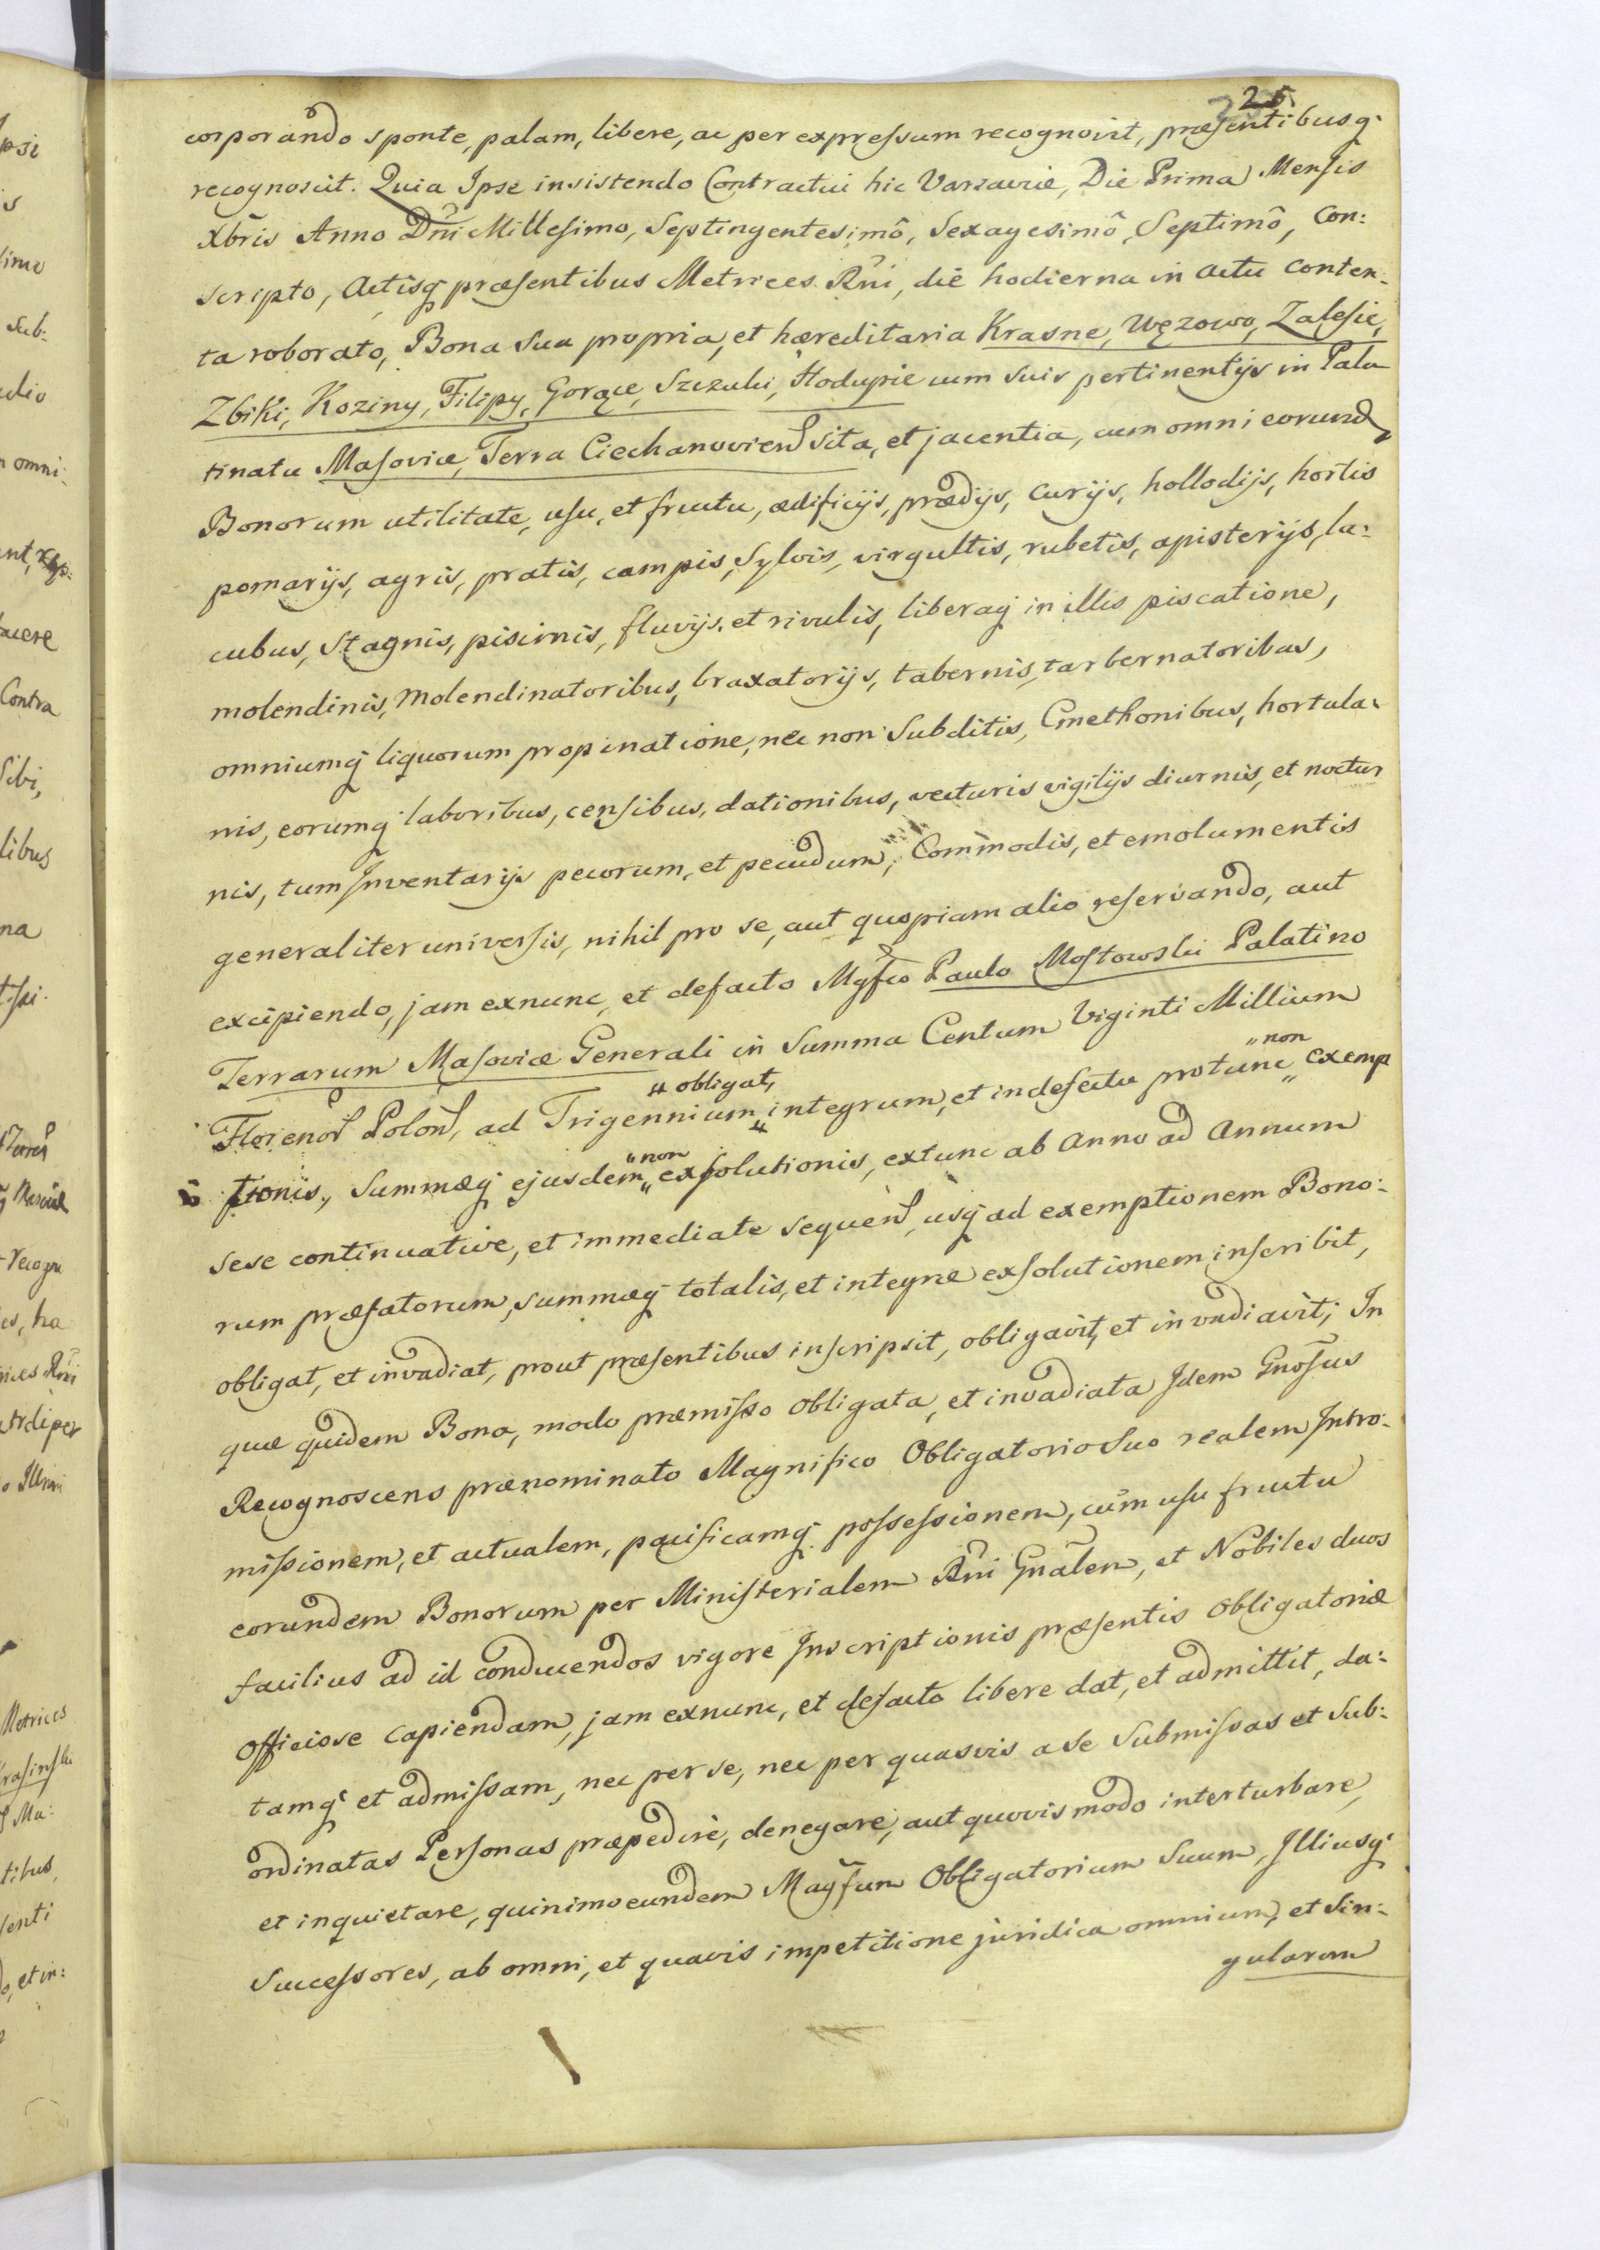 25.
corporando sponte, palam, libere, ac per expressum recognovit, præsentibusq;
recognoscit. Quia Ipse insistendo Contractui hic Varsaviæ, Die Prima Mensis
Xbris Anno Dni Millesimo, Septingentesimô, Sexagesimô, Septimô, Con:
scripto, Actisq; præsentibus Metrices Rni, die hodierna in actu conten:
ta roborato, Bona sua propria, et hæreditaria Krasne, Węzowo, Zalesie,
Zbiki, Koziny, Filipy, Gorące, Szczuki, Hodupie cum suis pertinentijs in Pala
tinatu Masoviæ, Terra Ciechanovien sita, et jacentia, cum omni eorund
Bonorum utilitate, usu, et fructu, ædificijs, prædijs, curijs, hollodijs, hortis
pomarijs, agris, pratis, campis, sylvis, virgultis, rubetis, apisterijs, la:
cubus, stagnis, piscinis, fluvijs, et rivulis, liberaq; in illis piscatione,
molendinis, Molendinatoribus, braxatorijs, tabernis, tarbernatoribus,
omniumq; liquorum propinatione, nec non Subditis, Cmethonibus, hortula:
nis, eorumq; laboribus, censibus, dationibus, vecturis vigilijs diurnis, et noctur
nis, tum Inventarijs pecorum, et pecudum, Commodis, et emolumentis
generaliter universis, nihil pro se, aut quopiam alio reservando, aut
excipiendo, jam exnunc, et defacto Mgfco Paulo Mostowski Palatino
Terrarum Masoviæ Generali in Summa Centum Viginti Millium
Florenor Polon, ad Trigennium "obligat," integrum, et in defectu protunc "non" exemp
tionis, Summæq; ejusdem "non" exsolutionis, extunc ab Anno ad Annum
sese continuative, et immediate sequen, usq; ad exemptionem Bono:
rum præfatorum, summæq; totalis, et integræ exsolutionem inscribit,
obligat, et invadiat, prout præsentibus inscripsit, obligavit, et invadiavit; In
quæ quidem Bona, modo præmisso obligata, et invadiata Idem Gnosus
Recognoscens prænominato Magnifico Obligatorio suo realem Intro:
missionem, et actualem, pacificamq; possessionem, cum usu fructu
eorundem Bonorum per Ministerialem Rni Gnalem, et Nobiles duos
facilius ad id conducendos vigore Inscriptionis præsentis obligatoriæ
officiose capiendam, jam exnunc, et defacto libere dat, et admittit, da:
tamq; et admissam, nec per se, nec per quasvis a se submissas et sub:
ordinatas Personas præpedire, denegare, aut quovis modo interturbare,
et inquietare, quinimo eundem Magfcum Obligatorium Suum, Illiusq;
Successores, ab omni, et quavis impetitione juridica omnium, et sin:
gularum